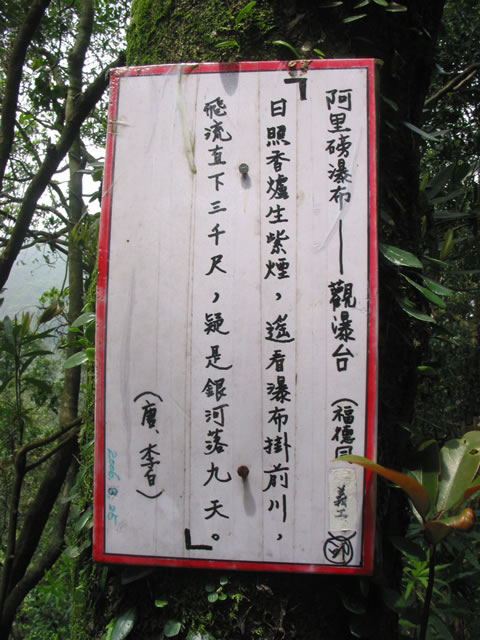 阿里磅瀑布——觀瀑台（福德
義工
「日照香爐生紫煙，遙看瀑布掛前川，
飛流直下三千尺，疑是銀河落九天。」
（唐、李白）